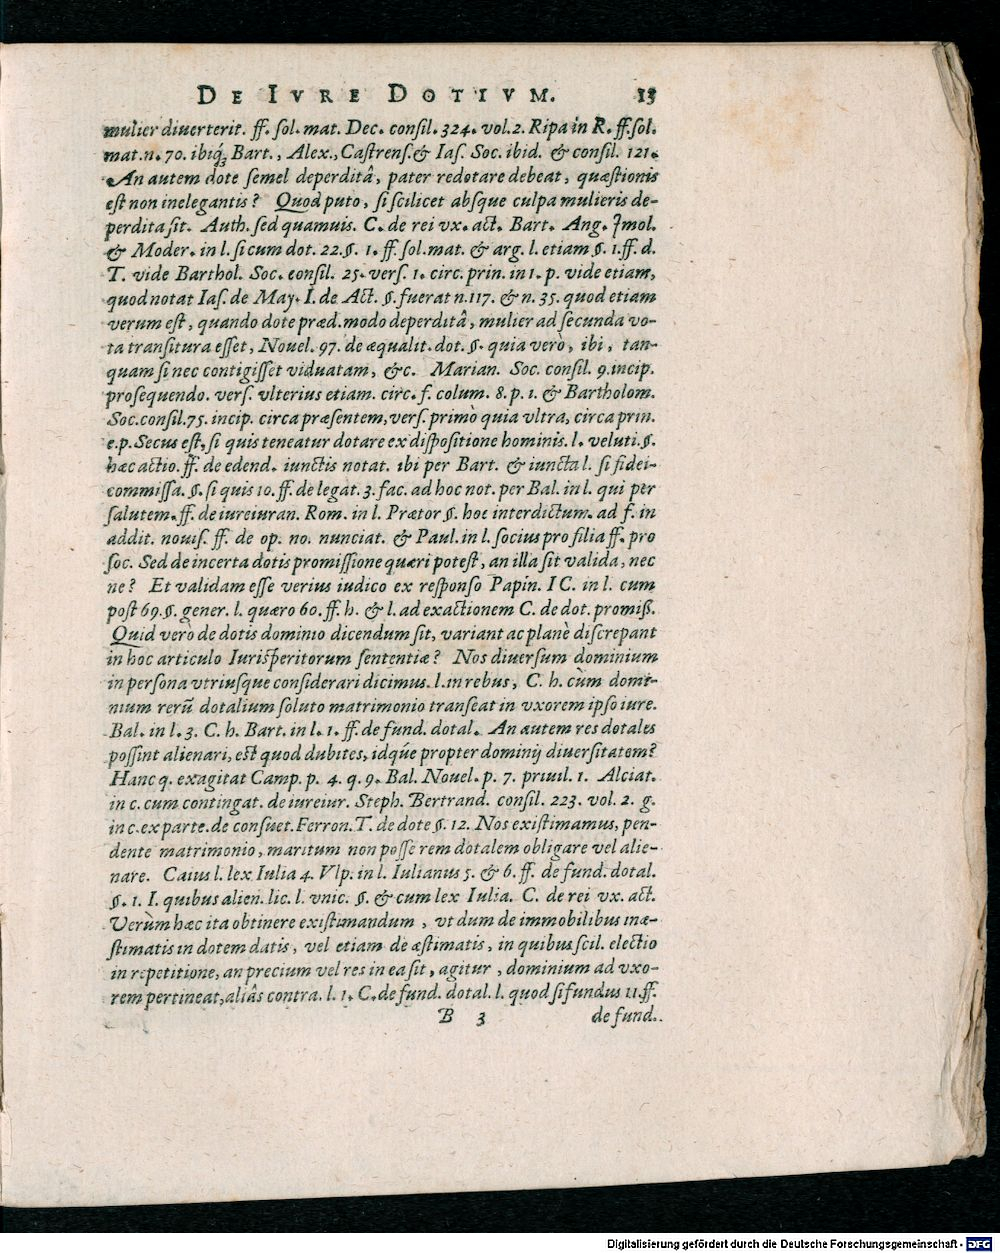 DE IVRE DOTIVM. 13
mulier diuerterit. ff. sol. mat. Dec. consil. 324. vol. 2. Ripa in R. ff. sol.
mat. n. 70. ibiq́; Bart., Alex., Castrens. & Ias. Soc. ibid. & consil. 121.
An autem dote semel deperditâ, pater redotare debeat, quæstionis
est non inelegantis? Quod puto, si scilicet absque culpa mulieris de-
perdita sit. Auth. sed quamuis. C. de rei vx. act. Bart. Ang. Imol.
& Moder. in l. si cum dot. 22. §. 1. ff. sol. mat. & arg. l. etiam §. 1. ff. d.
T. vide Barthol. Soc. consil. 25. vers. 1. circ. prin. in 1. p. vide etiam,
quod notat Ias. de May. I. de Act. §. fuerat n. 117. & n. 35. quod etiam
verum est, quando dote præd. modo deperditâ, mulier ad secunda vo-
ta transitura esset, Nouel. 97. de æqualit. dot. §. quia verò, ibi, tan-
quam si nec contigisset viduatam, &c. Marian. Soc. consil. 9. incip.
prosequendo. vers. vlterius etiam. circ. f. colum. 8. p. 1. & Bartholom.
Soc. consil. 75. incip. circa præsentem, vers. primò quia vltra, circa prin.
e. p. Secus est, si quis teneatur dotare ex dispositione hominis. l. veluti. §.
hæc actio. ff. de edend. iunctis notat. ibi per Bart. & iuncta l. si fidei-
commissa. §. si quis 10. ff. de legat. 3. fac. ad hoc not. per Bal. in l. qui per
salutem. ff. de iureiuran. Rom. in l. Prætor §. hoc interdictum. ad f. in
addit. nouis. ff. de op. no. nunciat. & Paul. in l. socius pro filia ff. pro
soc. Sed de incerta dotis promissione quæri potest, an illa sit valida, nec
ne? Et validam esse verius iudico ex responso Papin. IC. in l. cum
post 69. §. gener. l. quæro 60. ff. h. & l. ad exactionem C. de dot. promiss.
Quid vero de dotis dominio dicendum sit, variant ac planè discrepant
in hoc articulo Iurisperitorum sententiæ? Nos diuersum dominium
in persona vtriusque considerari dicimus. l. in rebus, C. h. cùm domi-
nium rerũ dotalium soluto matrimonio transeat in vxorem ipso iure.
Bal. in l. 3. C. h. Bart. in l. 1. ff. de fund. dotal. An autem res dotales
possint alienari, est quod dubites, idq́ue propter dominij diuersitatem?
Hanc q. exagitat Camp. p. 4. q. 9. Bal. Nouel. p. 7. priuil. 1. Alciat.
in c. cum contingat. de iureiur. Steph. Bertrand. consil. 223. vol. 2. g.
in c. ex parte. de consuet. Ferron. T. de dote §. 12. Nos existimamus, pen-
dente matrimonio, maritum non posse rem dotalem obligare vel alie-
nare. Caius l. lex Iulia 4. Vlp. in l. Iulianus 5. & 6. ff. de fund. dotal.
§. 1. I. quibus alien. lic. l. vnic. §. & cum lex Iulia. C. de rei vx. act.
Verùm hæc ita obtinere existimandum, vt dum de immobilibus inæ-
stimatis in dotem datis, vel etiam de æstimatis, in quibus scil. electio
in repetitione, an precium vel res in ea sit, agitur, dominium ad vxo-
rem pertineat, aliâs contra. l. 1. C. de fund. dotal. l. quod si fundus 11. ff.
B 3 de fund.
Digitalisierung gefördert durch die Deutsche Forschungsgemeinschaft - DFG